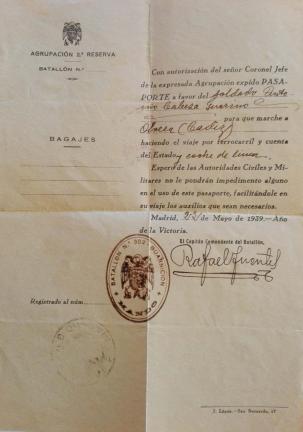 AGRUPACIÓN 2ª RESERVA
BATALLÓN N.º
BAGAJES
Con autorización del señor Coronel Jefe
de la expresada Agrupación expido PASA-
PORTE a favor del soldado
para que marche a
Olvera (Cádiz)
haciendo el viaje por ferrocarril y cuenta
del Estado y coche de linea.
Espero de las Autoridades Civiles y Mi-
litares no le pondrán impedimento alguno
en el uso de este pasaporte, facilitándole en
su viaje los auxilios que sean necesarios.
Madrid, de Mayo de 1939.-Año
de la Victoria.
El Capitán Comandante del Batallón,
Rafael Fuentes
BATALLÓN N.º 302 GUARNICIÓN
MANDO
Registrado al núm.
J. López.-San Bernardo, 67